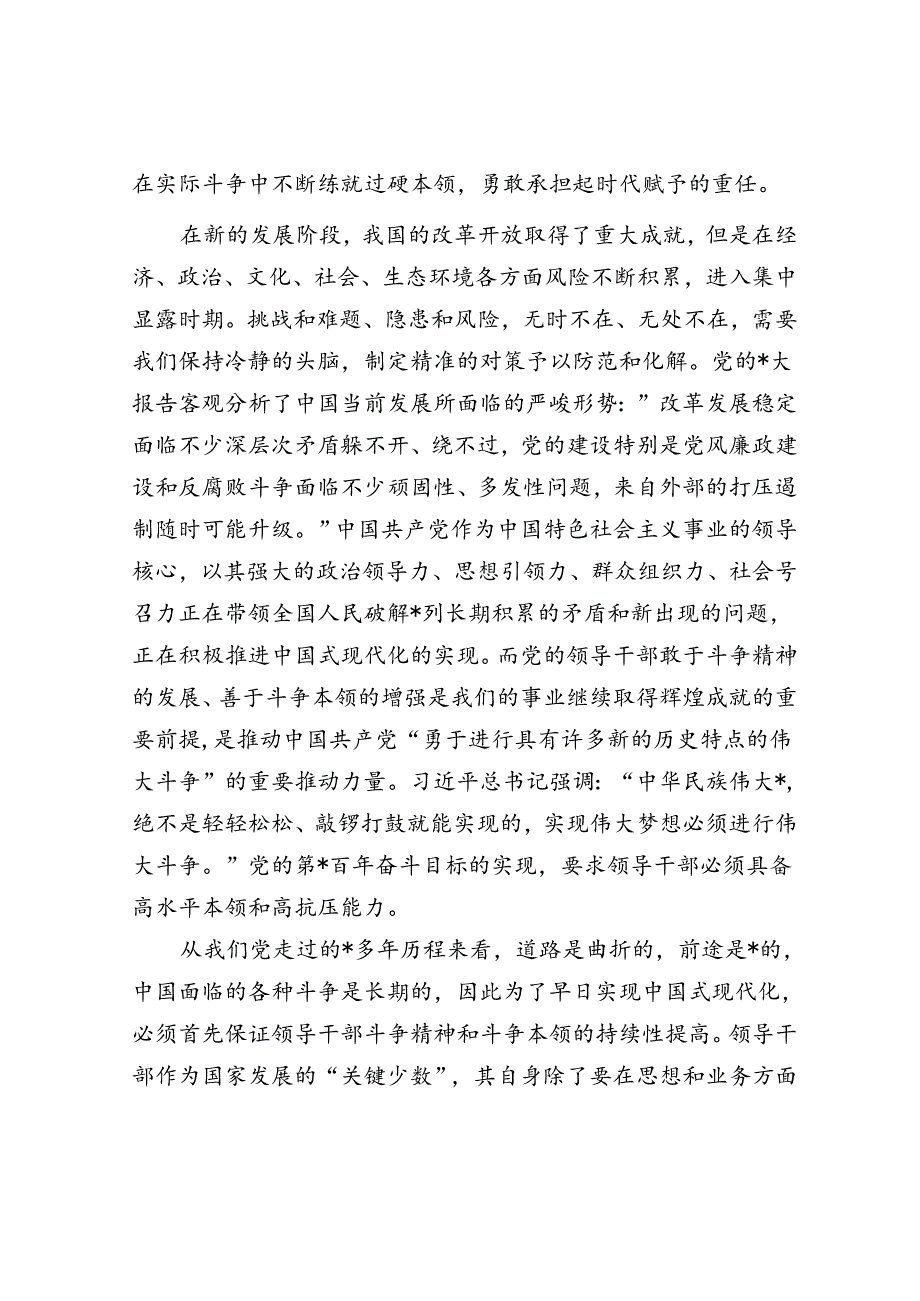 在实际斗争中不断练就过硬本领，勇敢承担起时代赋予的重任。
在新的发展阶段，我国的改革开放取得了重大成就，但是在经
济、政治、文化、社会、生态环境各方面风险不断积累，进入集中
显露时期。挑战和难题、隐患和风险，无时不在、无处不在，需要
我们保持冷静的头脑，制定精准的对策予以防范和化解。党的*大
报告客观分析了中国当前发展所面临的严峻形势：”改革发展稳定
面临不少深层次矛盾躲不开、绕不过，党的建设特别是党风廉政建
设和反腐败斗争面临不少顽固性、多发性问题，来自外部的打压遏
制随时可能升级。”中国共产党作为中国特色社会主义事业的领导
核心，以其强大的政治领导力、思想引领力、群众组织力、社会号
召力正在带领全国人民破解*列长期积累的矛盾和新出现的问题，
正在积极推进中国式现代化的实现。而党的领导干部敢于斗争精神
的发展、善于斗争本领的增强是我们的事业继续取得辉煌成就的重
要前提,是推动中国共产党“勇于进行具有许多新的历史特点的伟
大斗争”的重要推动力量。习近平总书记强调：“中华民族伟大*，
绝不是轻轻松松、敲锣打鼓就能实现的，实现伟大梦想必须进行伟
大斗争。”党的第*百年奋斗目标的实现，要求领导干部必须具备
高水平本领和高抗压能力。
从我们党走过的*多年历程来看，道路是曲折的，前途是*的，
中国面临的各种斗争是长期的，因此为了早日实现中国式现代化，
必须首先保证领导干部斗争精神和斗争本领的持续性提高。领导干
部作为国家发展的“关键少数”，其自身除了要在思想和业务方面